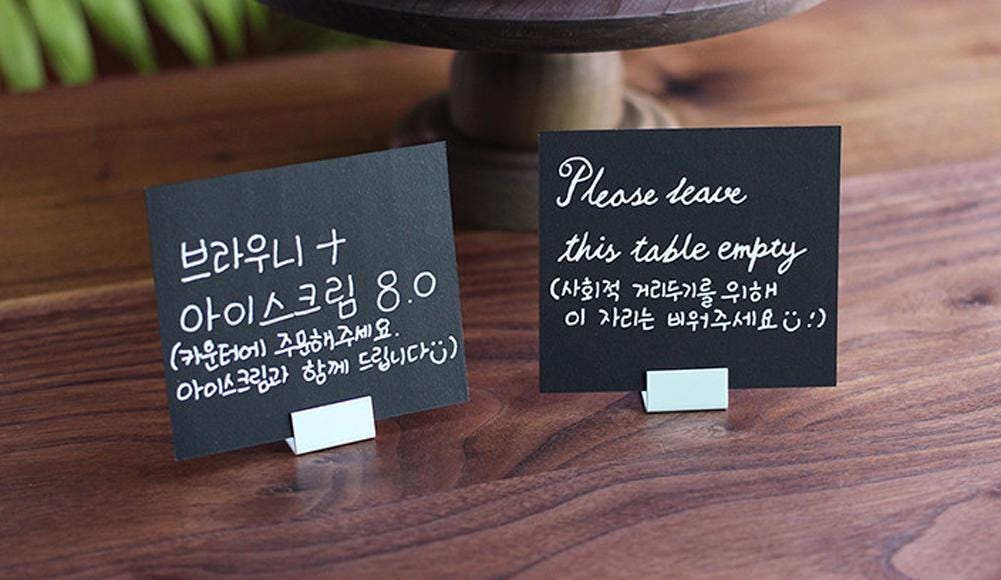 브라우니 +
아이스크림 8.0
(카운터에 주문해주세요.
아이스크림과 함께 드립니다ü)
Please leave
this table empty
(사회적 거리두기를 위해
이 자리는 비워주세요ü :)